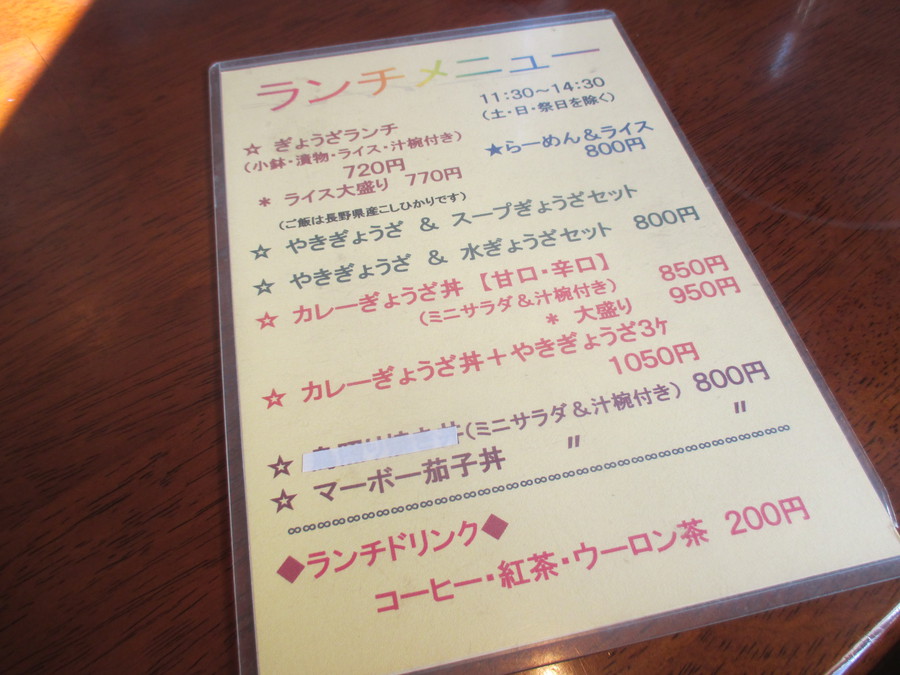 ランチメニュー
11:30~14:30
(土・日・祭日を除く)
☆ ぎょうざランチ
(小鉢・漬物・ライス・汁椀付き)
720円
* ライス大盛り 770円
(ご飯は長野県産こしひかりです)
★らーめん&ライス
800円
☆ やきぎょうざ & スープぎょうざセット
☆ やきぎょうざ & 水ぎょうざセット 800円
☆ カレーぎょうざ丼 【甘口・辛口】 850円
(ミニサラダ&汁椀付き)
* 大盛り 950円
☆ カレーぎょうざ丼+やきぎょうざ3ヶ
1050円
☆ (ミニサラダ&汁椀付き) 800円
☆ マーボー茄子丼 〃 〃
◆ランチドリンク◆
コーヒー・紅茶・ウーロン茶 200円